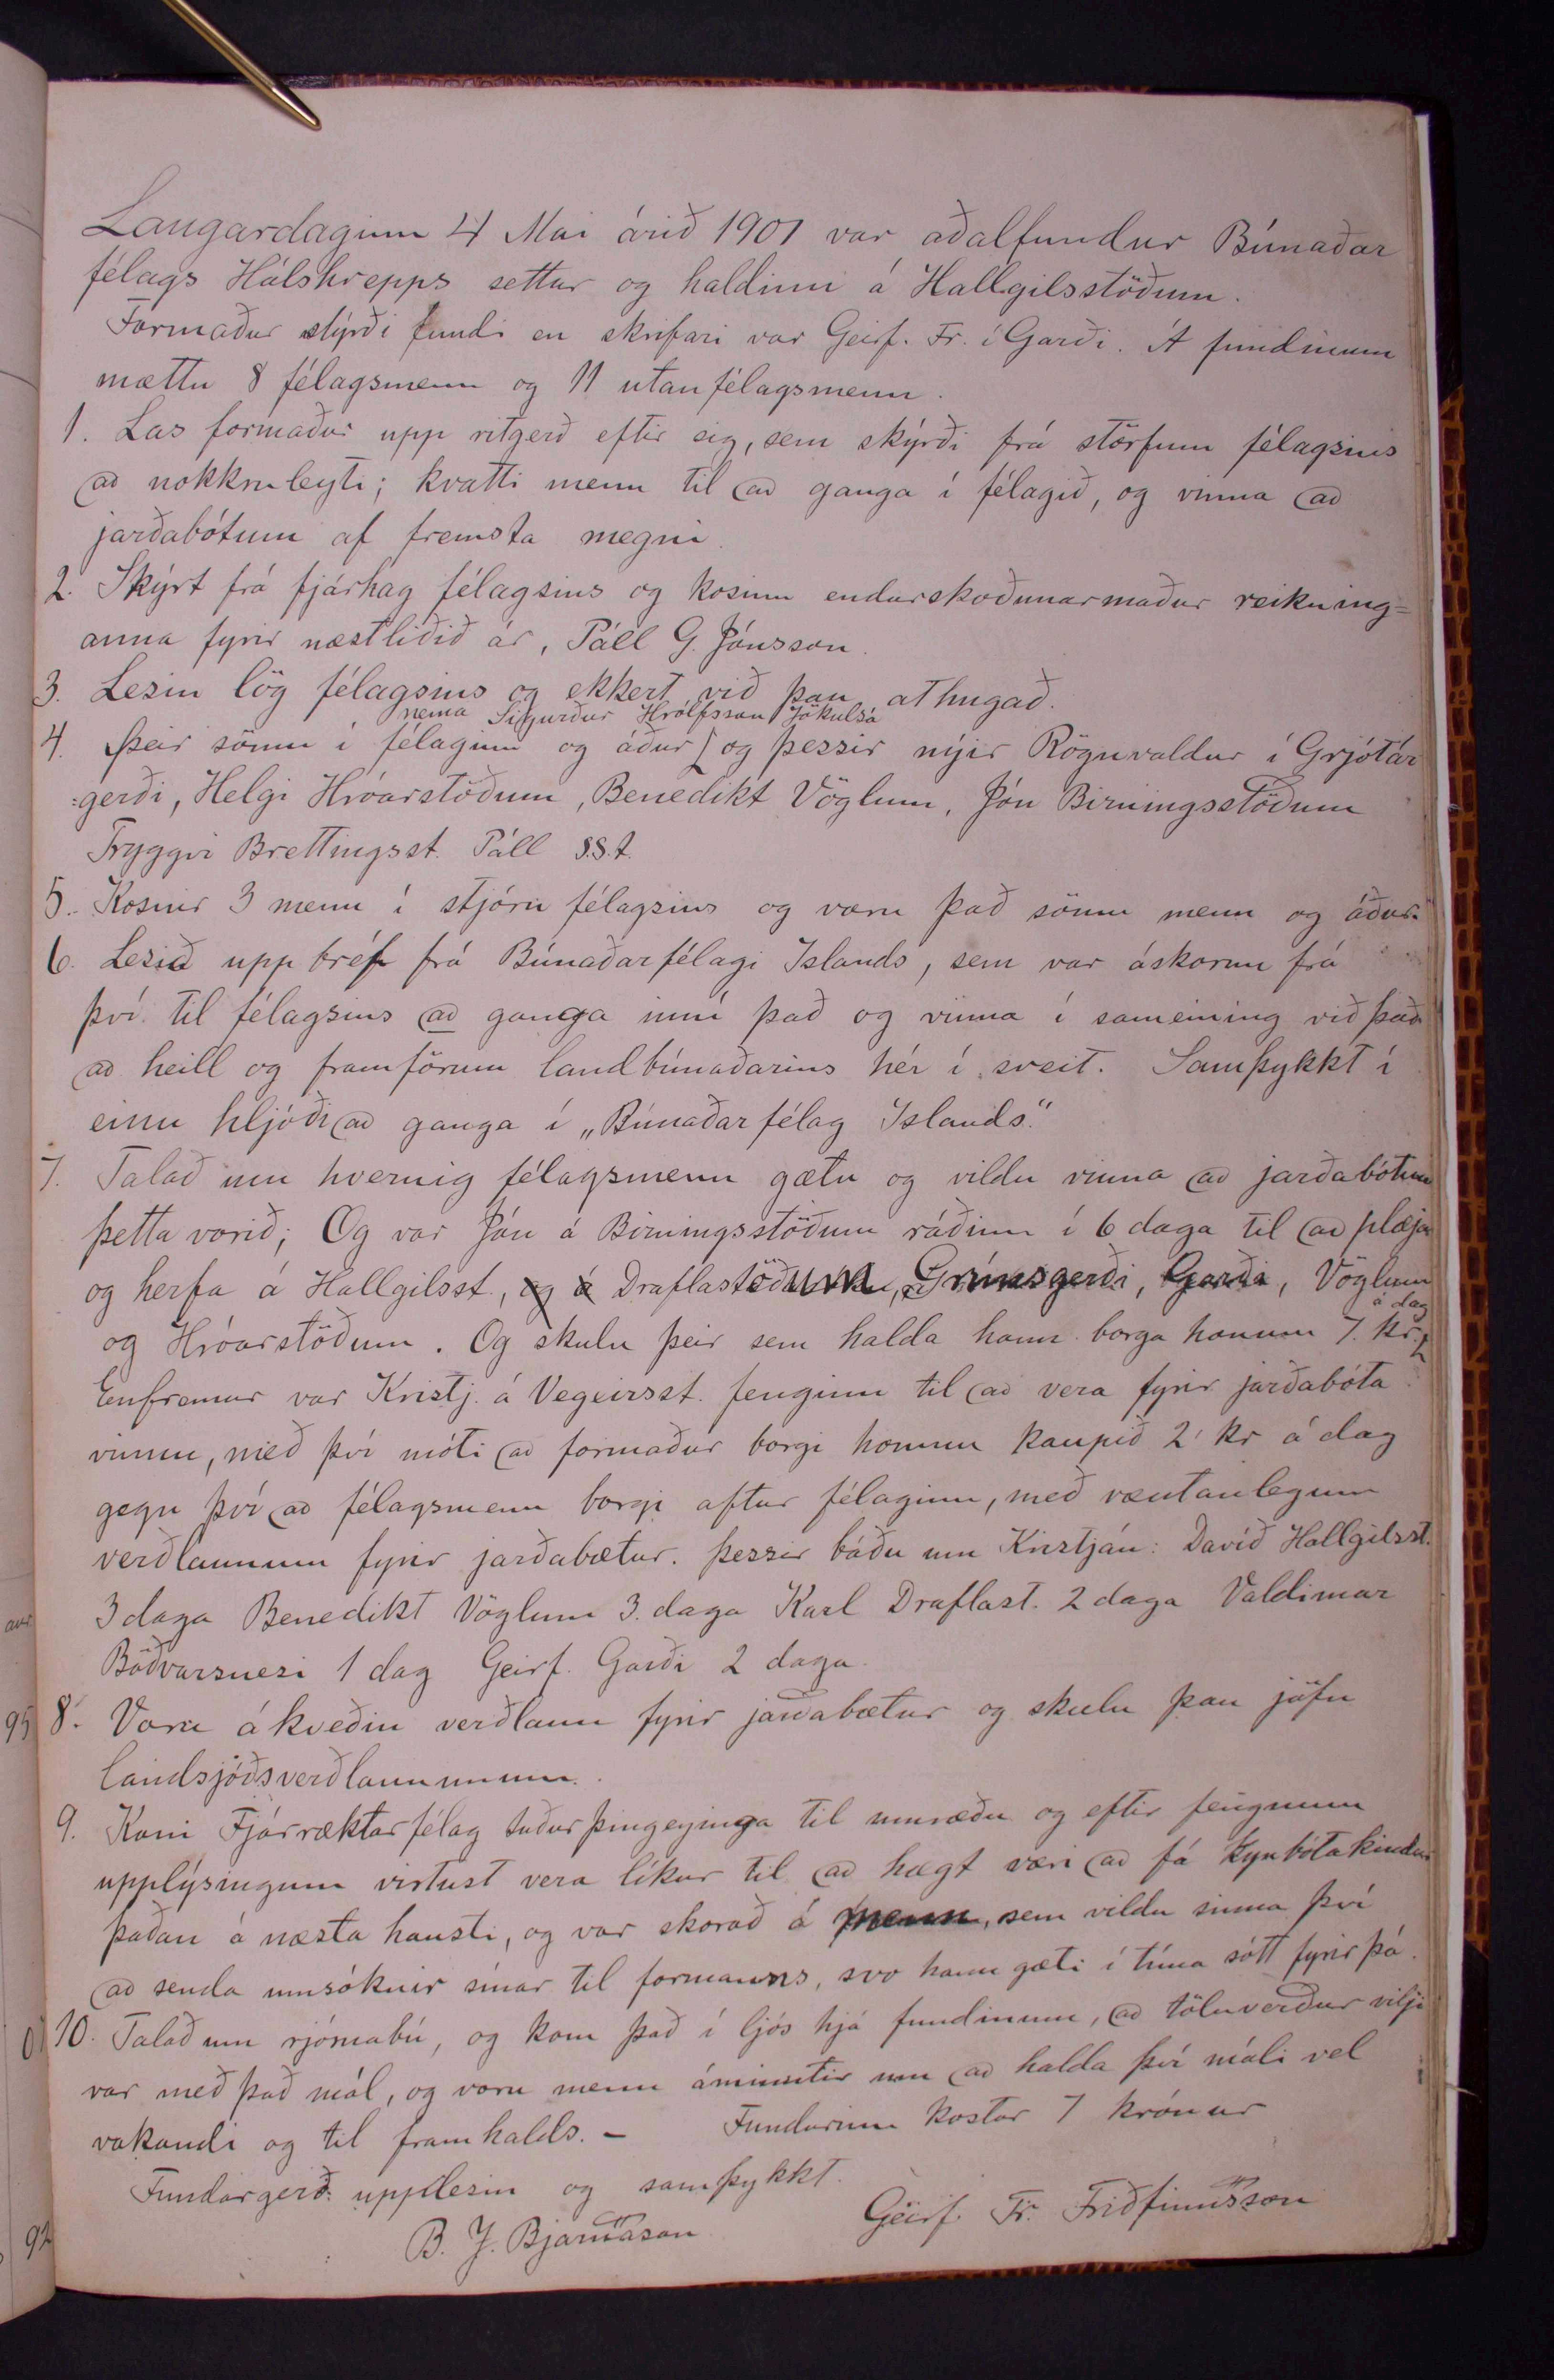 Laugardaginn 4 Mai árið 1901 var aðalfundur Búnaðar
félags Hálshrepps settur og haldinn á Hallgilsstöðum.
Formaður stýrði fundi en skrifari var Geirf. Fr. í Garði. Á fundinum
mættu 8 félagsmenn og 11 utanfélagsmenn.
1. Las formaður upp ritgerð eftir sig, sem skýrði frá störfum félagsins
að nokkruleyti; kvatti menn til að ganga í félagið, og vinna að
jarðabótum af fremsta megni.
2. Skýrt frá fjárhag félagsins og kosinn endurskoðunarmaður reikning=
anna fyrir næstliðið ár, Páll G. Jónsson.
3. Lesin lög félagsins og ekkert við þau athugað.
nema Sigurður Hrólfsson Jökulsá
4. Þeir sömu í félaginu og áður og þessir nýir Rögnvaldur í Grjótár
=gerði, Helgi Hróarstöðum, Benedikt Vöglum, Jón Birningsstöðum
Tryggvi Brettingsst. Páll s.s.t.
5. Kosnir 3 menn í stjórn félagsins og voru það sömu menn og áður.
6. Lesið upp bréf frá Búnaðarfélagi Islands, sem var áskorun frá
því til félagsins að ganga inní það og vinna í sameining við það
að heill og framförum landbúnaðarins hér í sveit. Samþykkt í
einu hljóði að ganga í „Búnaðarfélag Islands."
7. Talað um hvernig félagsmenn gætu og vildu vinna að jarðabótum
þetta vorið; Og var Jón á Birningsstöðum ráðinn í 6 daga til að plæja
og herfa á Hallgilsst, og á Draflastöðum, Grímsgerði, Garði, Vöglum
á dag
og Hróarstöðum. Og skulu þeir sem halda hann borga honum 7. kr.
Enfremur var Kristj. á Vegeirsst. fenginn til að vera fyrir jarðabóta
vinnu, með því móti að formaður borgi honum kaupið 2 kr á dag
gegn því að félagsmenn borgi aftur félaginu, með væntanlegum
verðlaunum fyrir jarðabætur. Þessir báðu um Kristján: Davíð Hallgilsst.
3 daga Benedikt Vöglum 3. daga Karl Draflast. 2 daga Valdimar
Böðvarsnesi 1 dag Geirf. Garði 2 daga.
8. Voru ákveðin verðlaun fyrir jarðabætur og skulu þau jöfn
landsjóðsverðlaununum.
9. Kom Fjárræktarfélag Suðurþingeyinga til umræðu og eftir fengnum
upplýsingum virtust vera líkur til að hægt væri að fá kynbótakindur
þaðan á næsta hausti, og var skorað á menn, sem vildu sinna því
að senda umsóknir sínar til formanns, svo hann gæti í tíma sótt fyrir þá.
10. Talað um rjómabú, og kom það í ljós hjá fundinum, að töluverður vilji
var með það mál, og voru menn ámínntir um að halda því máli vel
vakandi og til framhalds. – Fundurinn kostar 7 krónur
Fundargerð upplesin og samþykkt.
B. J. Bjarnason Geirf. Fr. Friðfinnsson